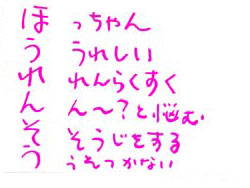 ほ っちゃん
う うれしい
れ れんらくすく
ん ん〜?と悩む
そ そうじをする
う うそつかない